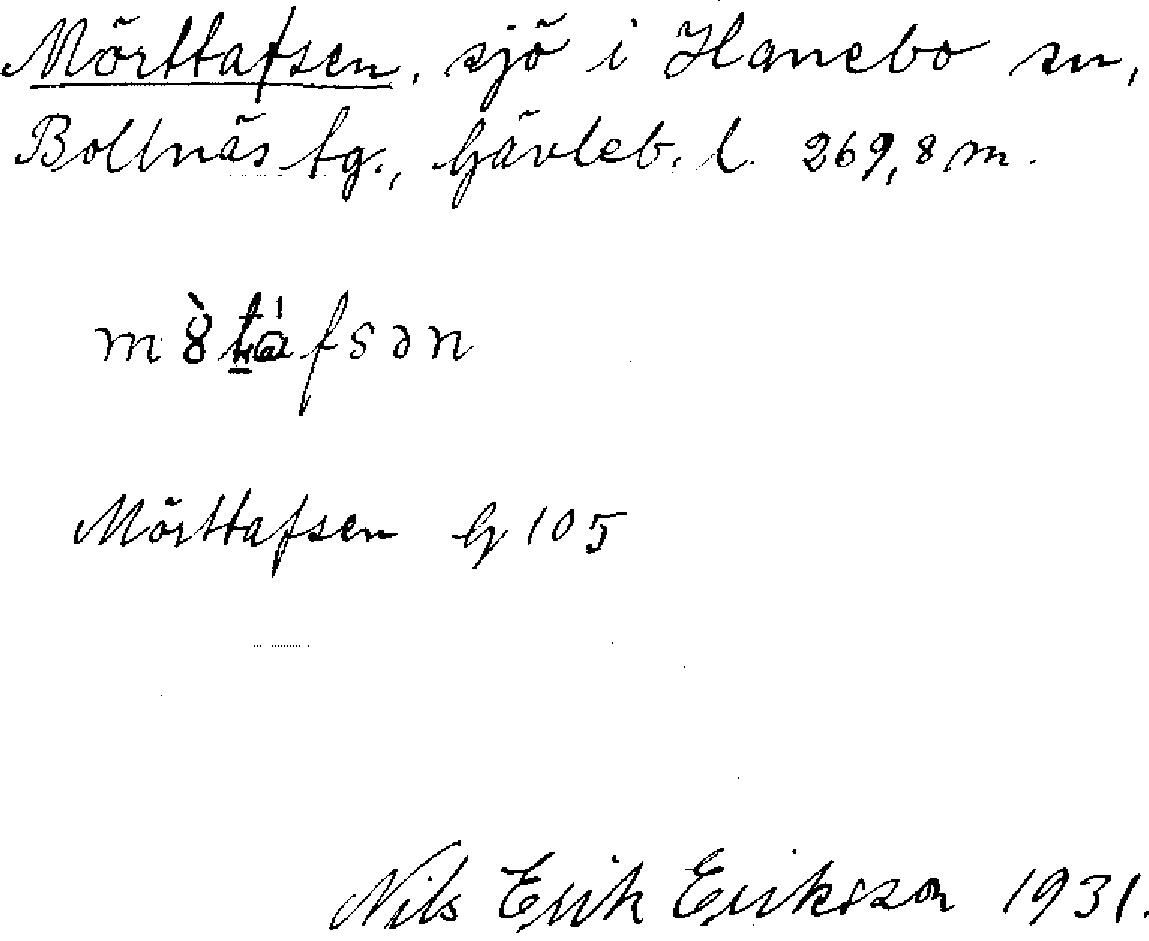 Mörttafsen, sjö i Hanebo sn,
Bollnäs tg., Gävleb. l. 269,8 m.
Mörttafsen G 105
Nils Erik Eriksson 1931.